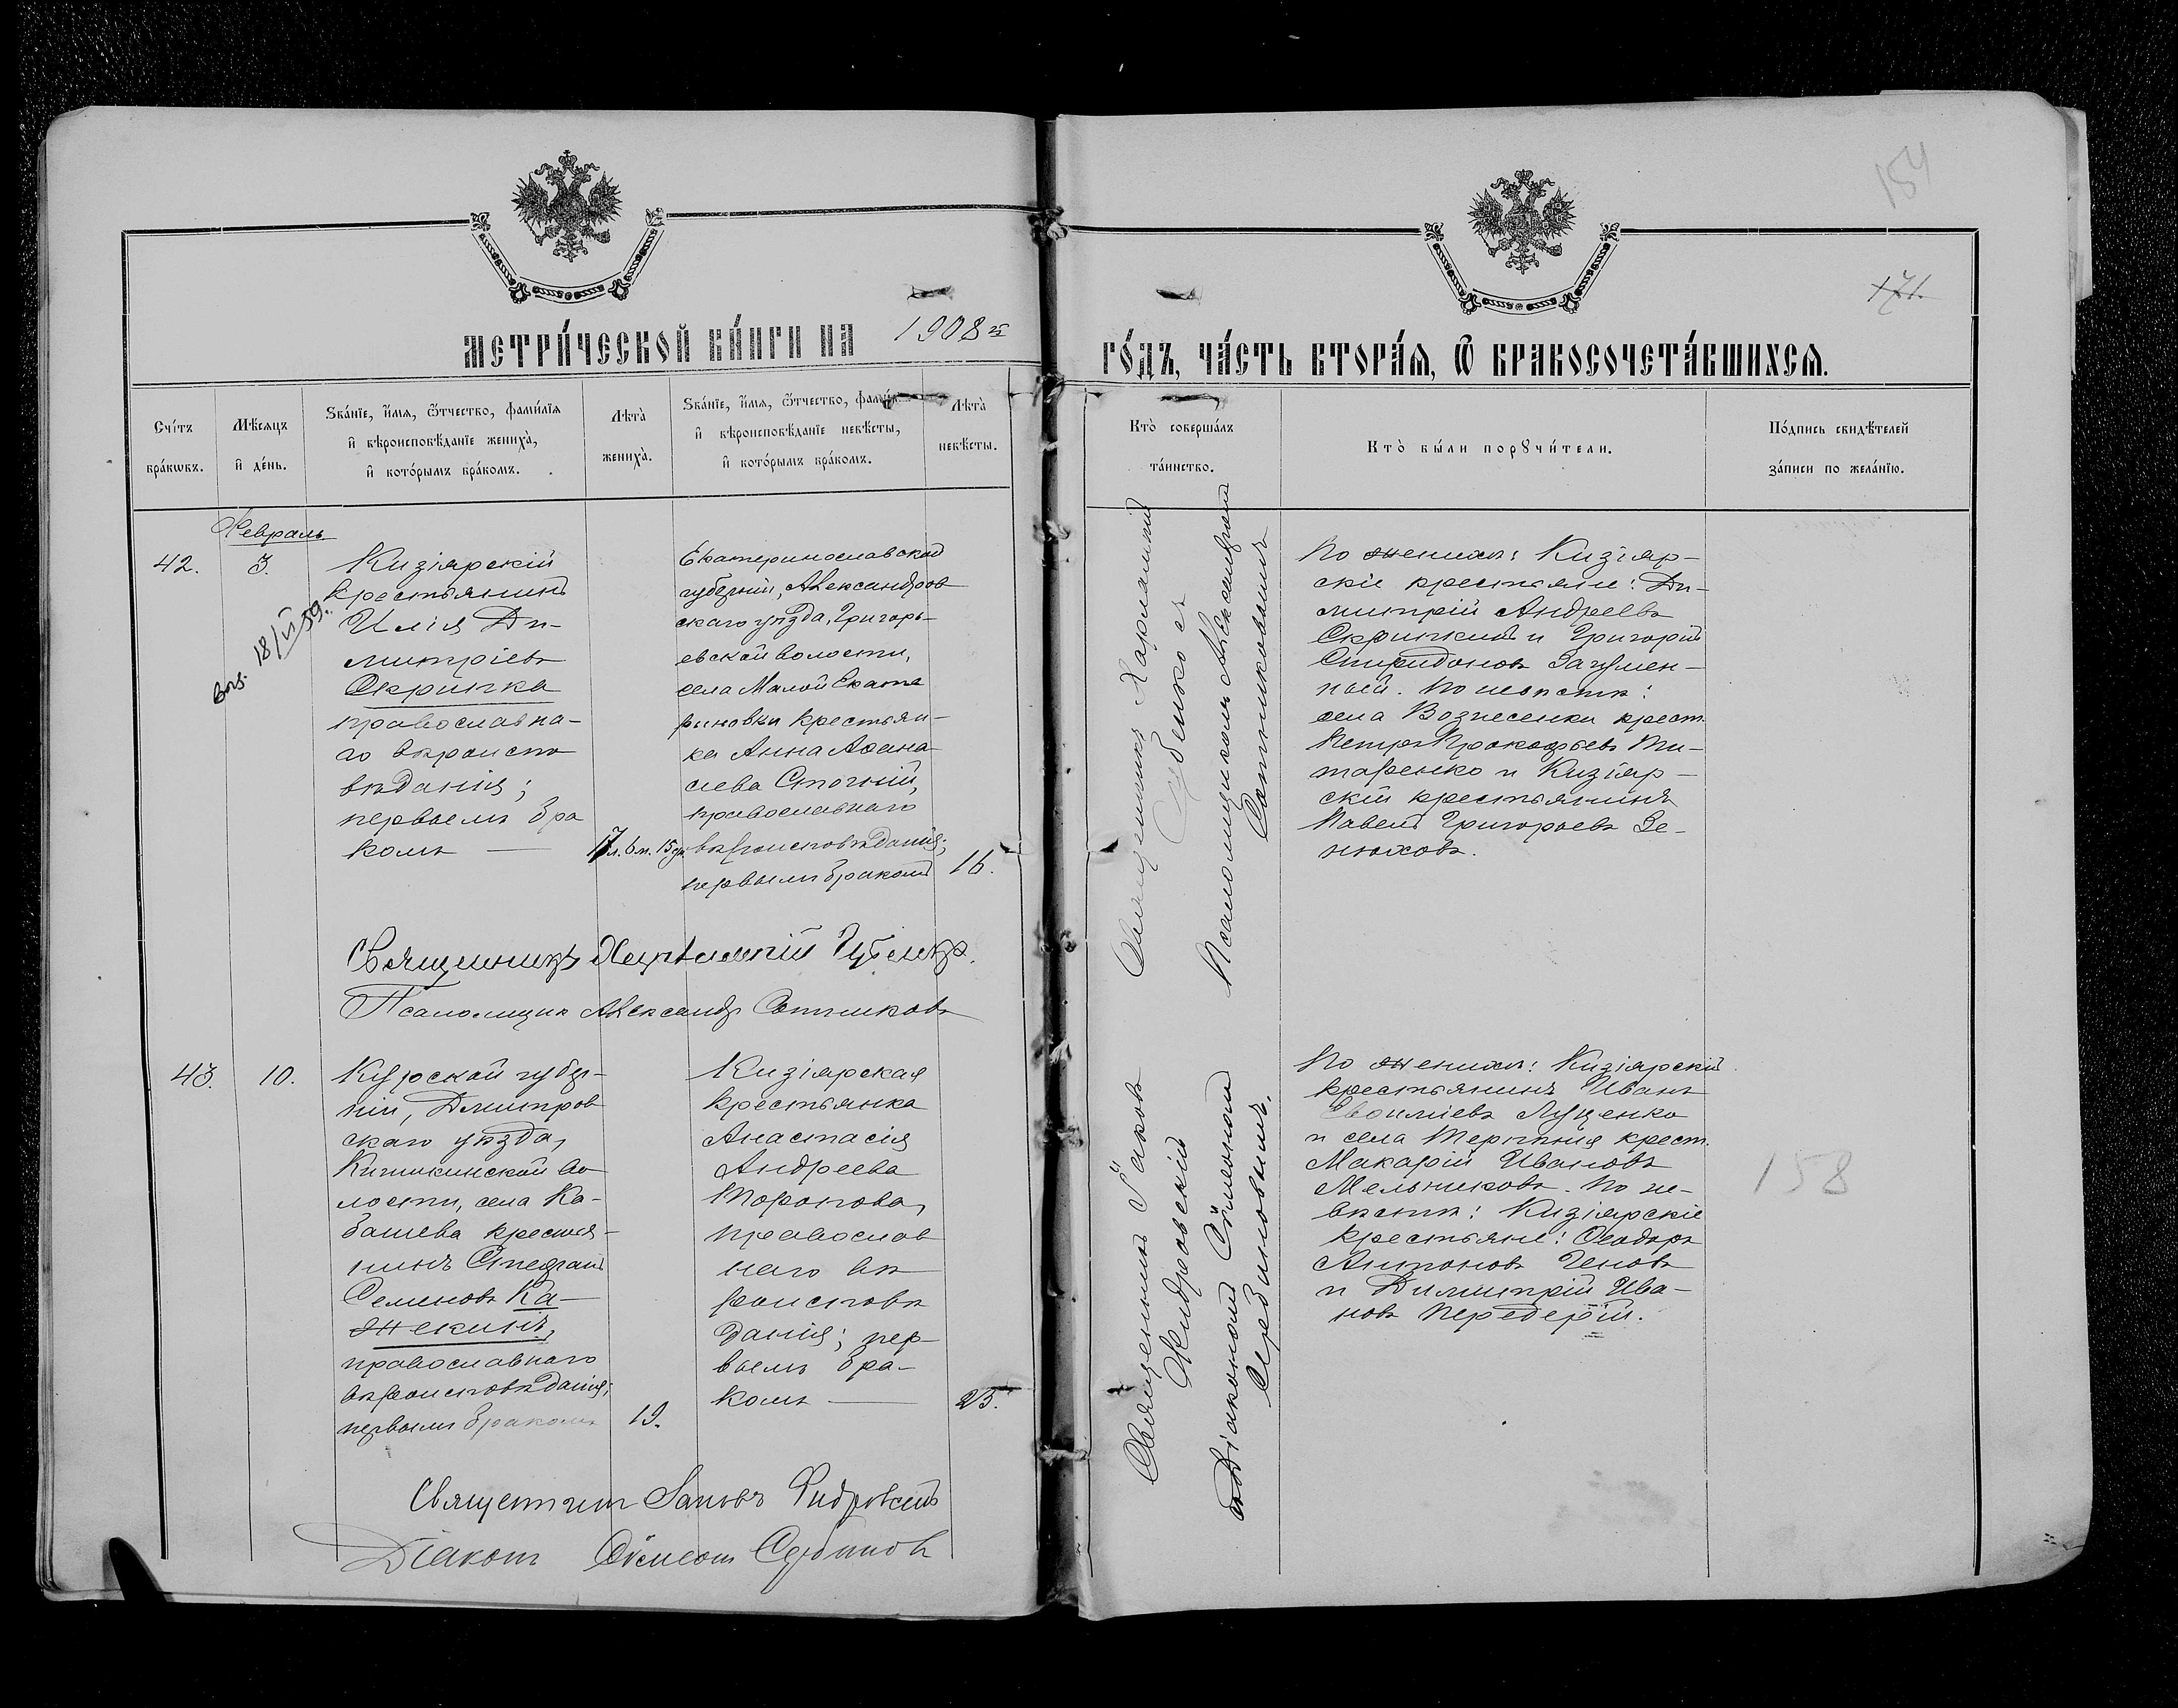 154
171.
МЕТРИ́ЧЕСКОЙ КНИ́ГИ НА 1908й
ГО́ДЪ, ЧА́СТЬ ВТОРА́Я, Ѽ БРАКОСОЧЕТА́ВШИХСЯ.
Сче́тъ бра́кѡвъ.
Мѣ́сяцъ и҆ де́нь.
Ѕва́нїе, и҆́мя, ѻ҆́тчество, фами́лїя
и҆ вѣроисповѣ́данїе жениха̀,
и҆ кото́рымъ бра́комъ.
Лѣта̀
жениха̀.
Ѕва́нїе, и҆́мя, ѻ҆́тчество, фами́лїя
и҆ вѣроисповѣ́данїе невѣ́сты,
и҆ кото́рымъ бра́комъ.
Лѣта̀
невѣ́сты.
Кто̀ соверша́лъ
та́инство.
Кто̀ бы́ли порꙋчи́тели.
По́дпись свидѣ́телей
за́писи по жела́нїю.
Февраль
42.
3.
18/II 59.
Кизіярскій
крестьянинъ
Илія Ди-
митріевъ
Скрипка
православна-
го вѣроиспо
вѣданія;
первымъ бра
комъ
17 л. 6 м. 15 дн.
Екатеринославской
губерніи, Александров
скаго уѣзда, Григорь-
евской волости,
села Малой Екате
риновки крестьян-
ка Анна Аѳана-
сіева
православнаго
вѣроисповѣданія;
первымъ бракомъ
16.
Священникъ Харлампій
Губенко съ
Псаломщикомъ Александромъ
Сотниковымъ
По женихѣ: Кизіяр-
скіе крестьяне: Ди-
митрій Андреевъ
и Григорій
Спиридоновъ Загумен-
ный. По невѣстѣ:
села Вознесенки крест.
Петръ Прокофьевъ Ти-
таренко и Кизіяр-
скій крестьянинъ
Павелъ Григорьевъ Зе-
нюховъ.
Священникъ Харлампій Губенко.
Псаломщик Александр Сотниковъ
43.
10.
Курской губер-
ніи, Дмитров
скаго уѣзда,
во
лости, села
крестья-
нинъ Стефанъ
Семеновъ Ка-
жекинъ,
православнаго
вѣроисповѣданія;
первымъ бракомъ
19.
Кизіярская
крестьянка
Анастасія
Андреева
Торопова,
православ
наго вѣ
роисповѣ
данія; пер-
вымъ бра-
комъ
23.
Священникъ Іаковъ
Жидровскій
съ Діакономъ Сѵмеономъ
Сербиновымъ.
По женихѣ: Кизіярскій
крестьянинъ Иванъ
Евфиміевъ Луценко
и села Терпѣнія крест.
Макарій Ивановъ
Мельниковъ. По не-
вѣстѣ: Кизіярскіе
крестьяне: Ѳеодоръ
Антоновъ
и Димитрій Ива-
новъ Передерій.
158
Священникъ Іаковъ Жидровскій
Діаконъ Сѵмеонъ Сербиновъ